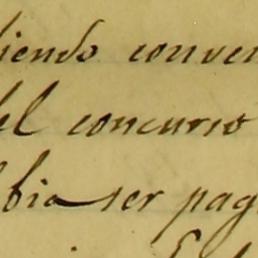 diendo conven
del concurso
bia ser pag